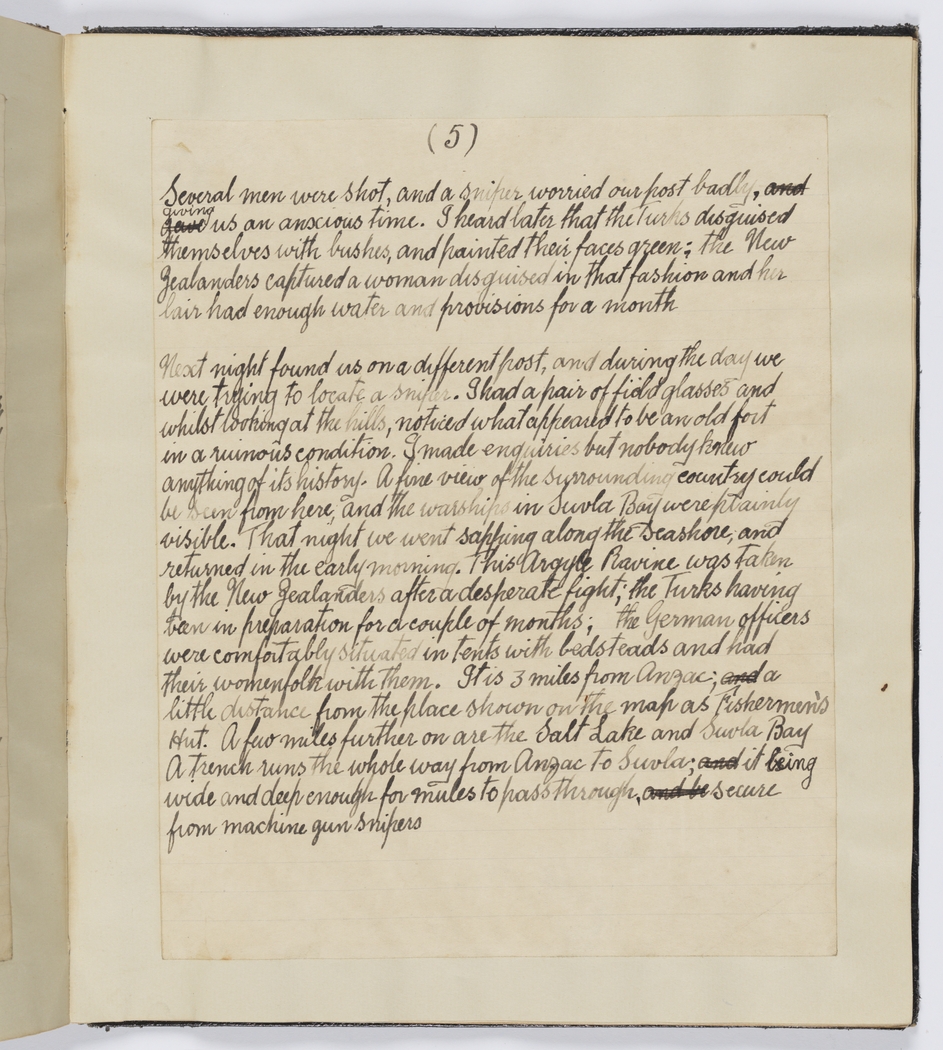 (5)
Several men were shot, and a sniper worried our post badly, and
giving
gave us an anxcious time. I heard later that the Turks disguised
themselves with bushes, and painted their faces green; the New
Zealanders captured a woman disguised in that fashion and her
lair had enough water and provisions for a month
Next night found us on a different post, and during the day we
were trying to locate a sniper. I had a pair of field glasses and
whilst looking at the hills, noticed what appeared to be an old fort
in a ruinous condition. I made enquiries but nobody knew
anything of its history. A fine view of the surrounding country could
be seen from here, and the warships in Suvla Bay were plainly
visible. That night we went sapping along the seashore, and
returned in the early morning. This Argyle Ravine was taken
by the New Zealanders after a desperate fight; the Turks having
been in preparation for a couple of months; the German officers
were comfortably situated in tents with bedsteads and had
their womenfolk with them. It is 3 miles from Anzac; and a
little distance from the place shown on the map as Fishermen's
Hut. A few miles further on are the Salt Lake and Suvla Bay
A trench runs the whole way from Anzac to Suvla; and it being
wide and deep enough for mules to pass through, and be secure
from machine gun snipers